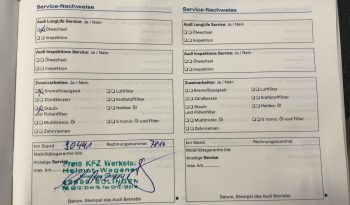 Service-Nachweise
Audi LongLife Service: Ja / Nein
Ölwechsel
Inspektion
Audi Inspektions Service: Ja / Nein
Ölwechsel
Inspektion
Zusatzarbeiten: Ja / Nein
Bremsflüssigkeit
Luftfilter
Zündkerzen
Kraftstofffilter
Staub- und Pollenfilter
Haldex: Öl
Multitronic: Öl
S tronic: Öl und Filter
Zahnriemen
km Stand
Rechnungsnummer:
Mobilitätsgarantie
Anzeige Service
max. km
Freie KFZ Werkst.
Helmut Wegener
SOLINGEN
Datum, Stempel des Audi Betriebs
Service-Nachweise
Audi LongLife Service: Ja / Nein
Ölwechsel
Inspektion
Audi Inspektions Service: Ja / Nein
Ölwechsel
Inspektion
Zusatzarbeiten: Ja / Nein
Bremsflüssigkeit
Luftfilter
Zündkerzen
Kraftstofffilter
Staub- und Pollenfilter
Haldex: Öl
Multitronic: Öl
S tronic: Öl und Filter
Zahnriemen
km Stand
Rechnungsnummer:
Mobilitätsgarantie
Anzeige Service
max. km
Datum, Stempel des Audi Betriebs